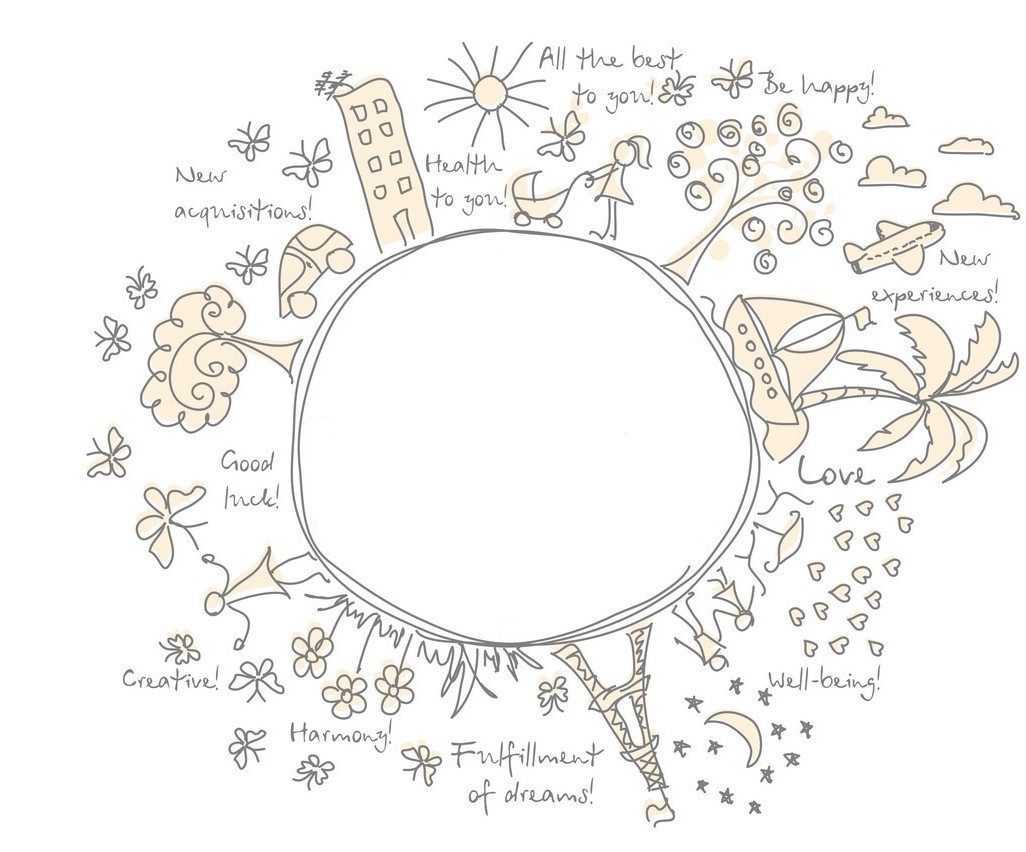 All the best
to you!
Be happy!
Health
to you!
New
acquisitions!
New
experiences!
Good
luck!
Love
Creative!
Well-being!
Harmony!
Fulfillment
of dreams!